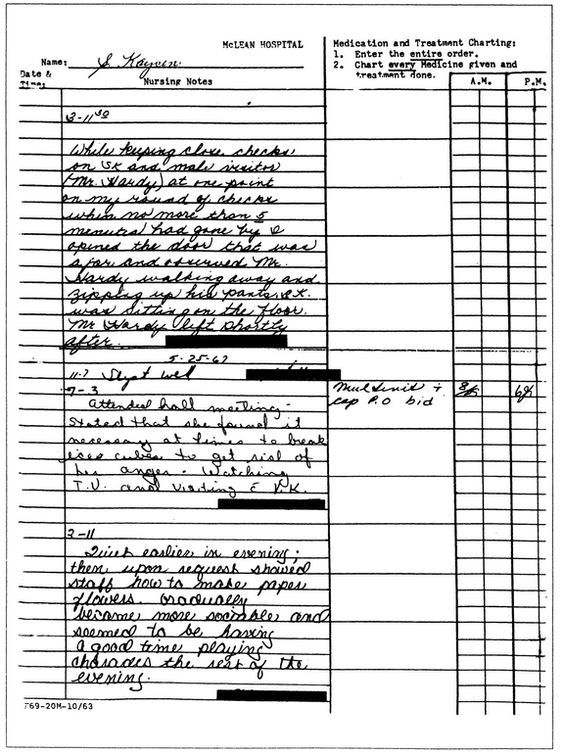 McLEAN HOSPITAL
Medication and Treatment Charting:
1. Enter the entire order.
2. Chart every Medicine given and
treatment done.
Name: S. Kaysen
Date &
Time:
Nursing Notes
A.M.
P.M.
3-11 30
While keeping close checks
on SK and male visitor
(Mr. Hardy) at one point
on my round of checks
when no more than 5
minutes had gone by I
opened the door that was
ajar and observed Mr.
Hardy walking away and
zipping up his pants. S.K.
was sitting on the floor.
Mr Hardy left shortly
after.
5-25-67
11-7 Slept well
7-3
Attended hall meeting -
stated that she found it
necessary at times to break
ice cubes to get rid of
her anger - Watching
T.V. and visiting c̄ V.K.
cap P.O bid
3-11
Quiet earlier in evening;
then upon request showed
staff how to make paper
flowers. Gradually
became more sociable and
seemed to be having
a good time playing
charades the rest of the
evening.
F69-20M-10/63